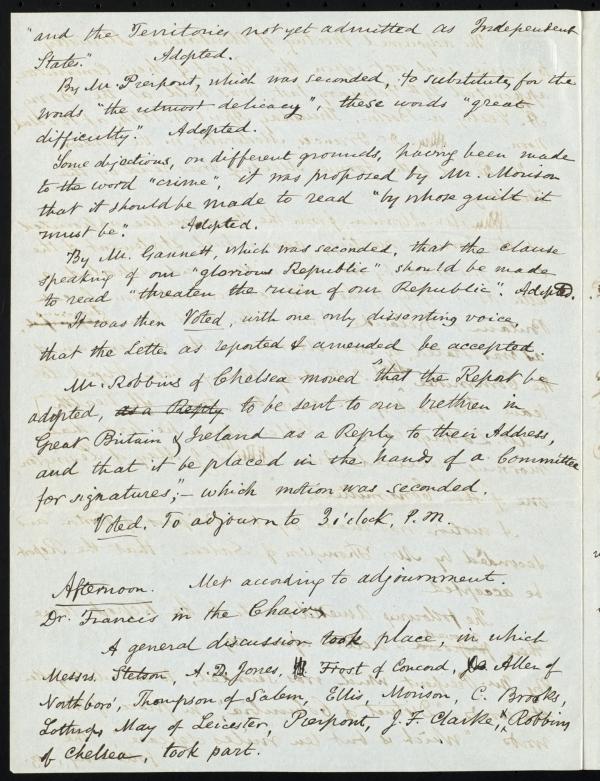 "and the Territories not yet admitted as Independent
States." Adopted.
By Mr. Pierpont, which was seconded, to substitute, for the
words "the utmost delicacy", these words "great
difficulty." Adopted.
Some objections, on different grounds, having been made
to the word "crime", it was proposed by Mr. Morison
that it should be made to read "by whose guilt it
must be." Adopted.
By Mr. Gannett, which was seconded, that the clause
speaking of our "glorious Republic" should be made
to read "threaten the ruin of our Republic". Adopted.
It was then Voted, with one only dissenting voice,
that the Letter as reported & amended be accepted.
Mr. Robbins of Chelsea moved "that the Report be
adopted, as a Reply to be sent to our brethren in
Great Britain & Ireland as a Reply to their Address,
and that it be placed in the hands of a Committee
for signatures"; – which motion was seconded.
Voted, To adjourn to 3 o'clock, P.M.
Afternoon. Met according to adjournment.
Dr. Francis in the Chair.
A general discussion took place, in which
Messrs. Stetson, A. D. Jones, Frost of Concord, Allen of
Northboro', Thompson of Salem, Ellis, Morison, C. Brooks,
Lothrop, May of Leicester, Pierpont, J. F. Clarke, Robbins
of Chelsea, took part.